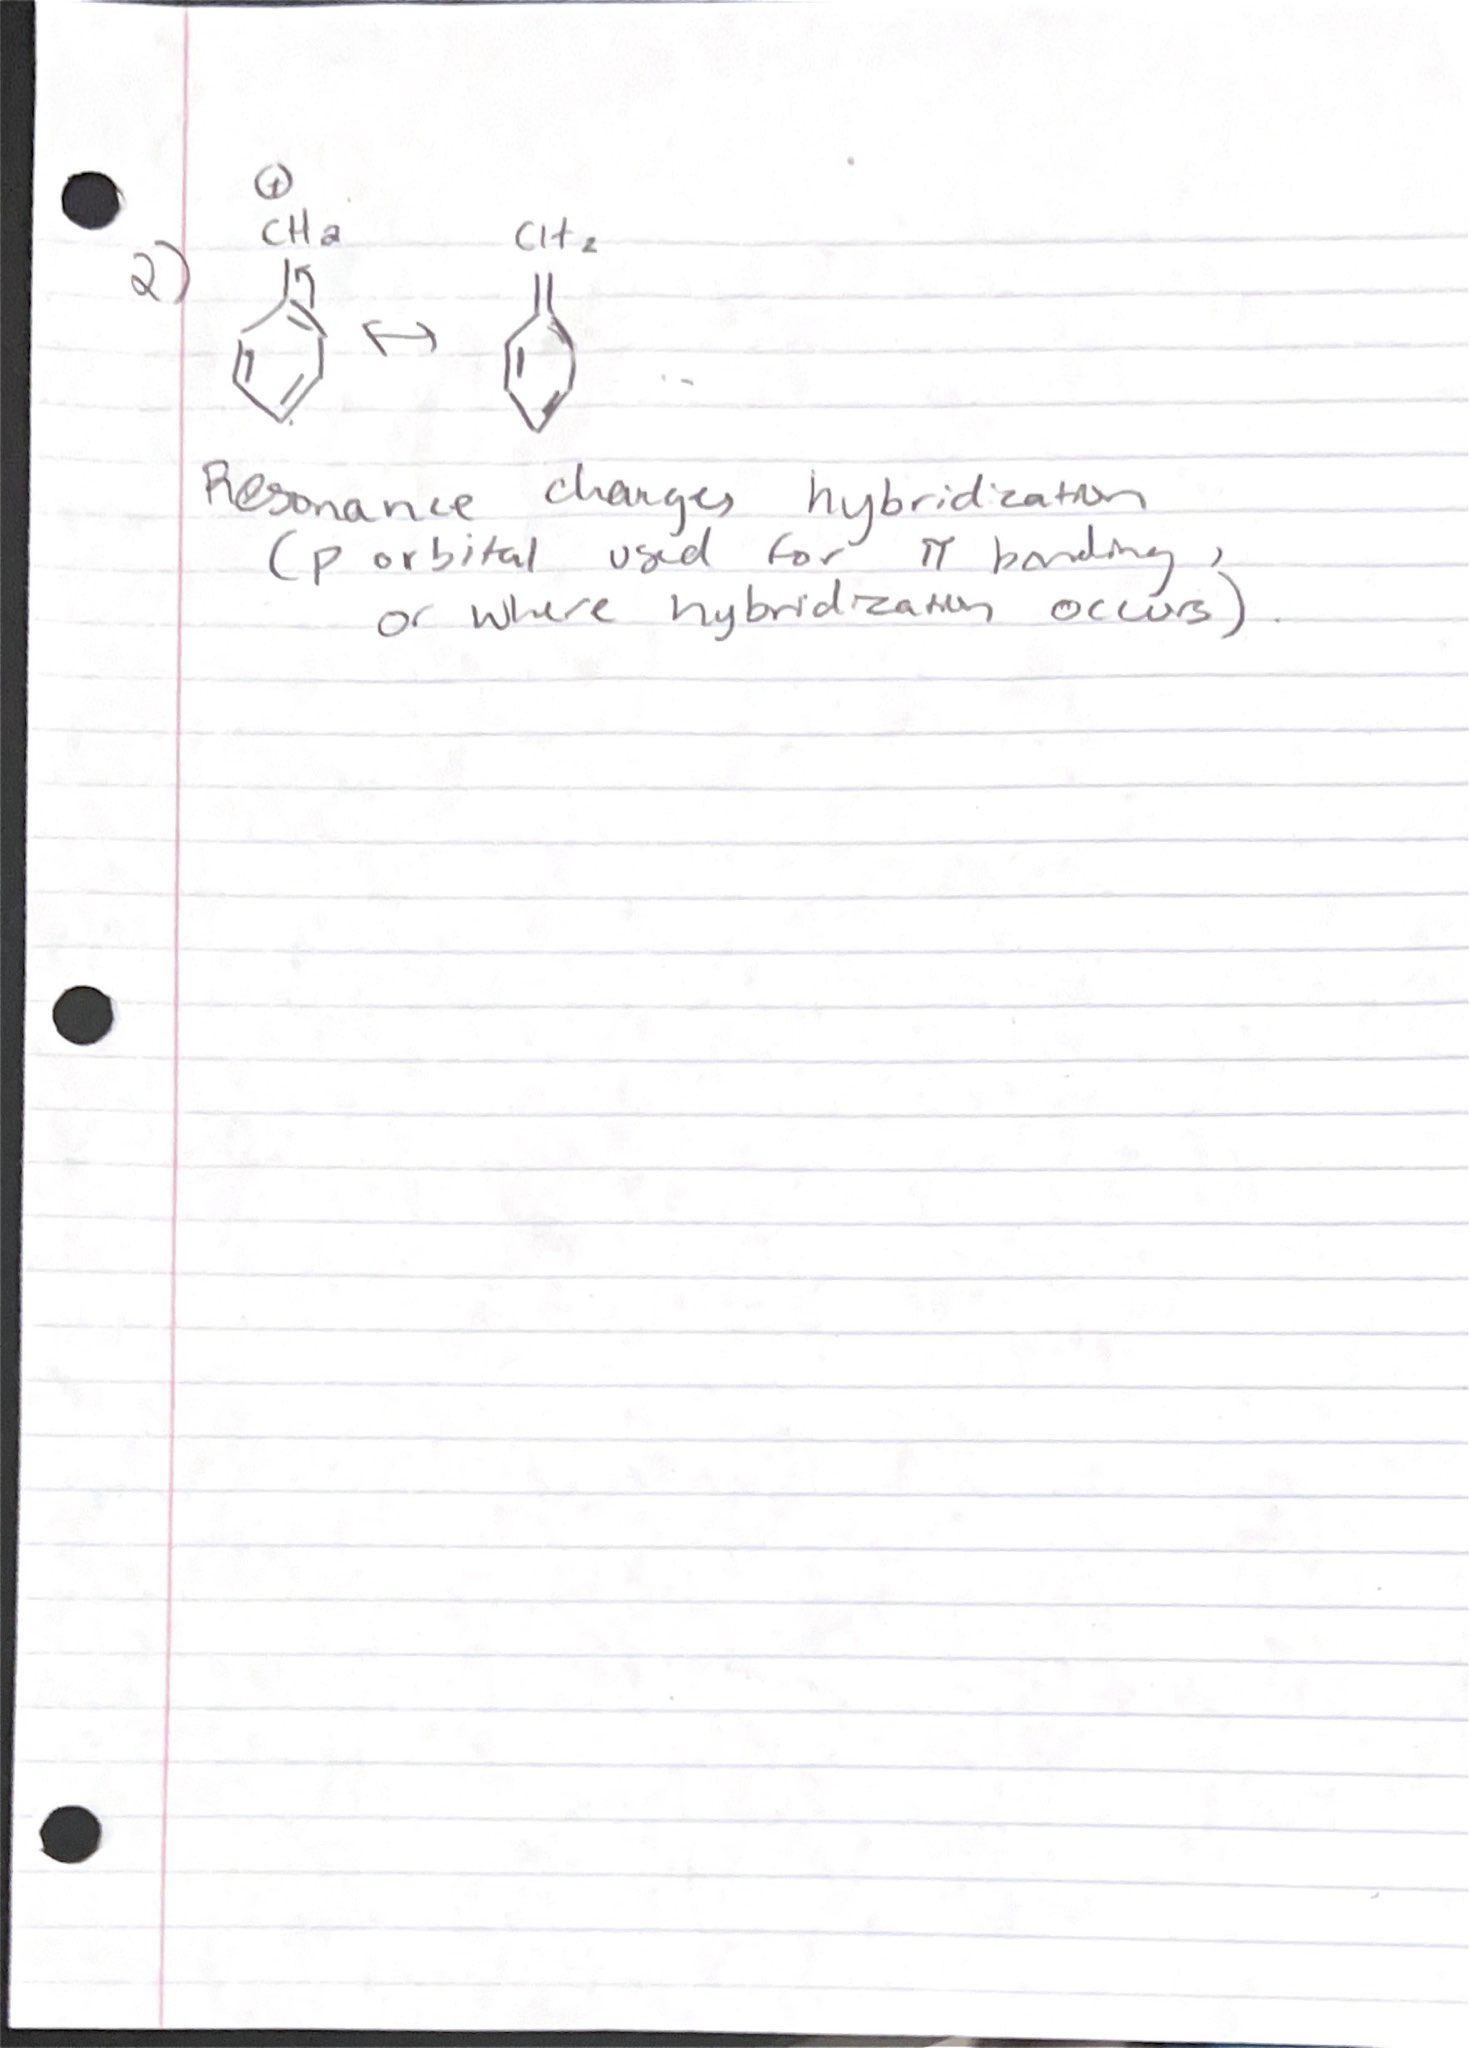 ⊕
CH2 CH2
2)
↔
Resonance changes hybridization
(p orbital used for π bonding,
or where hybridization occurs).